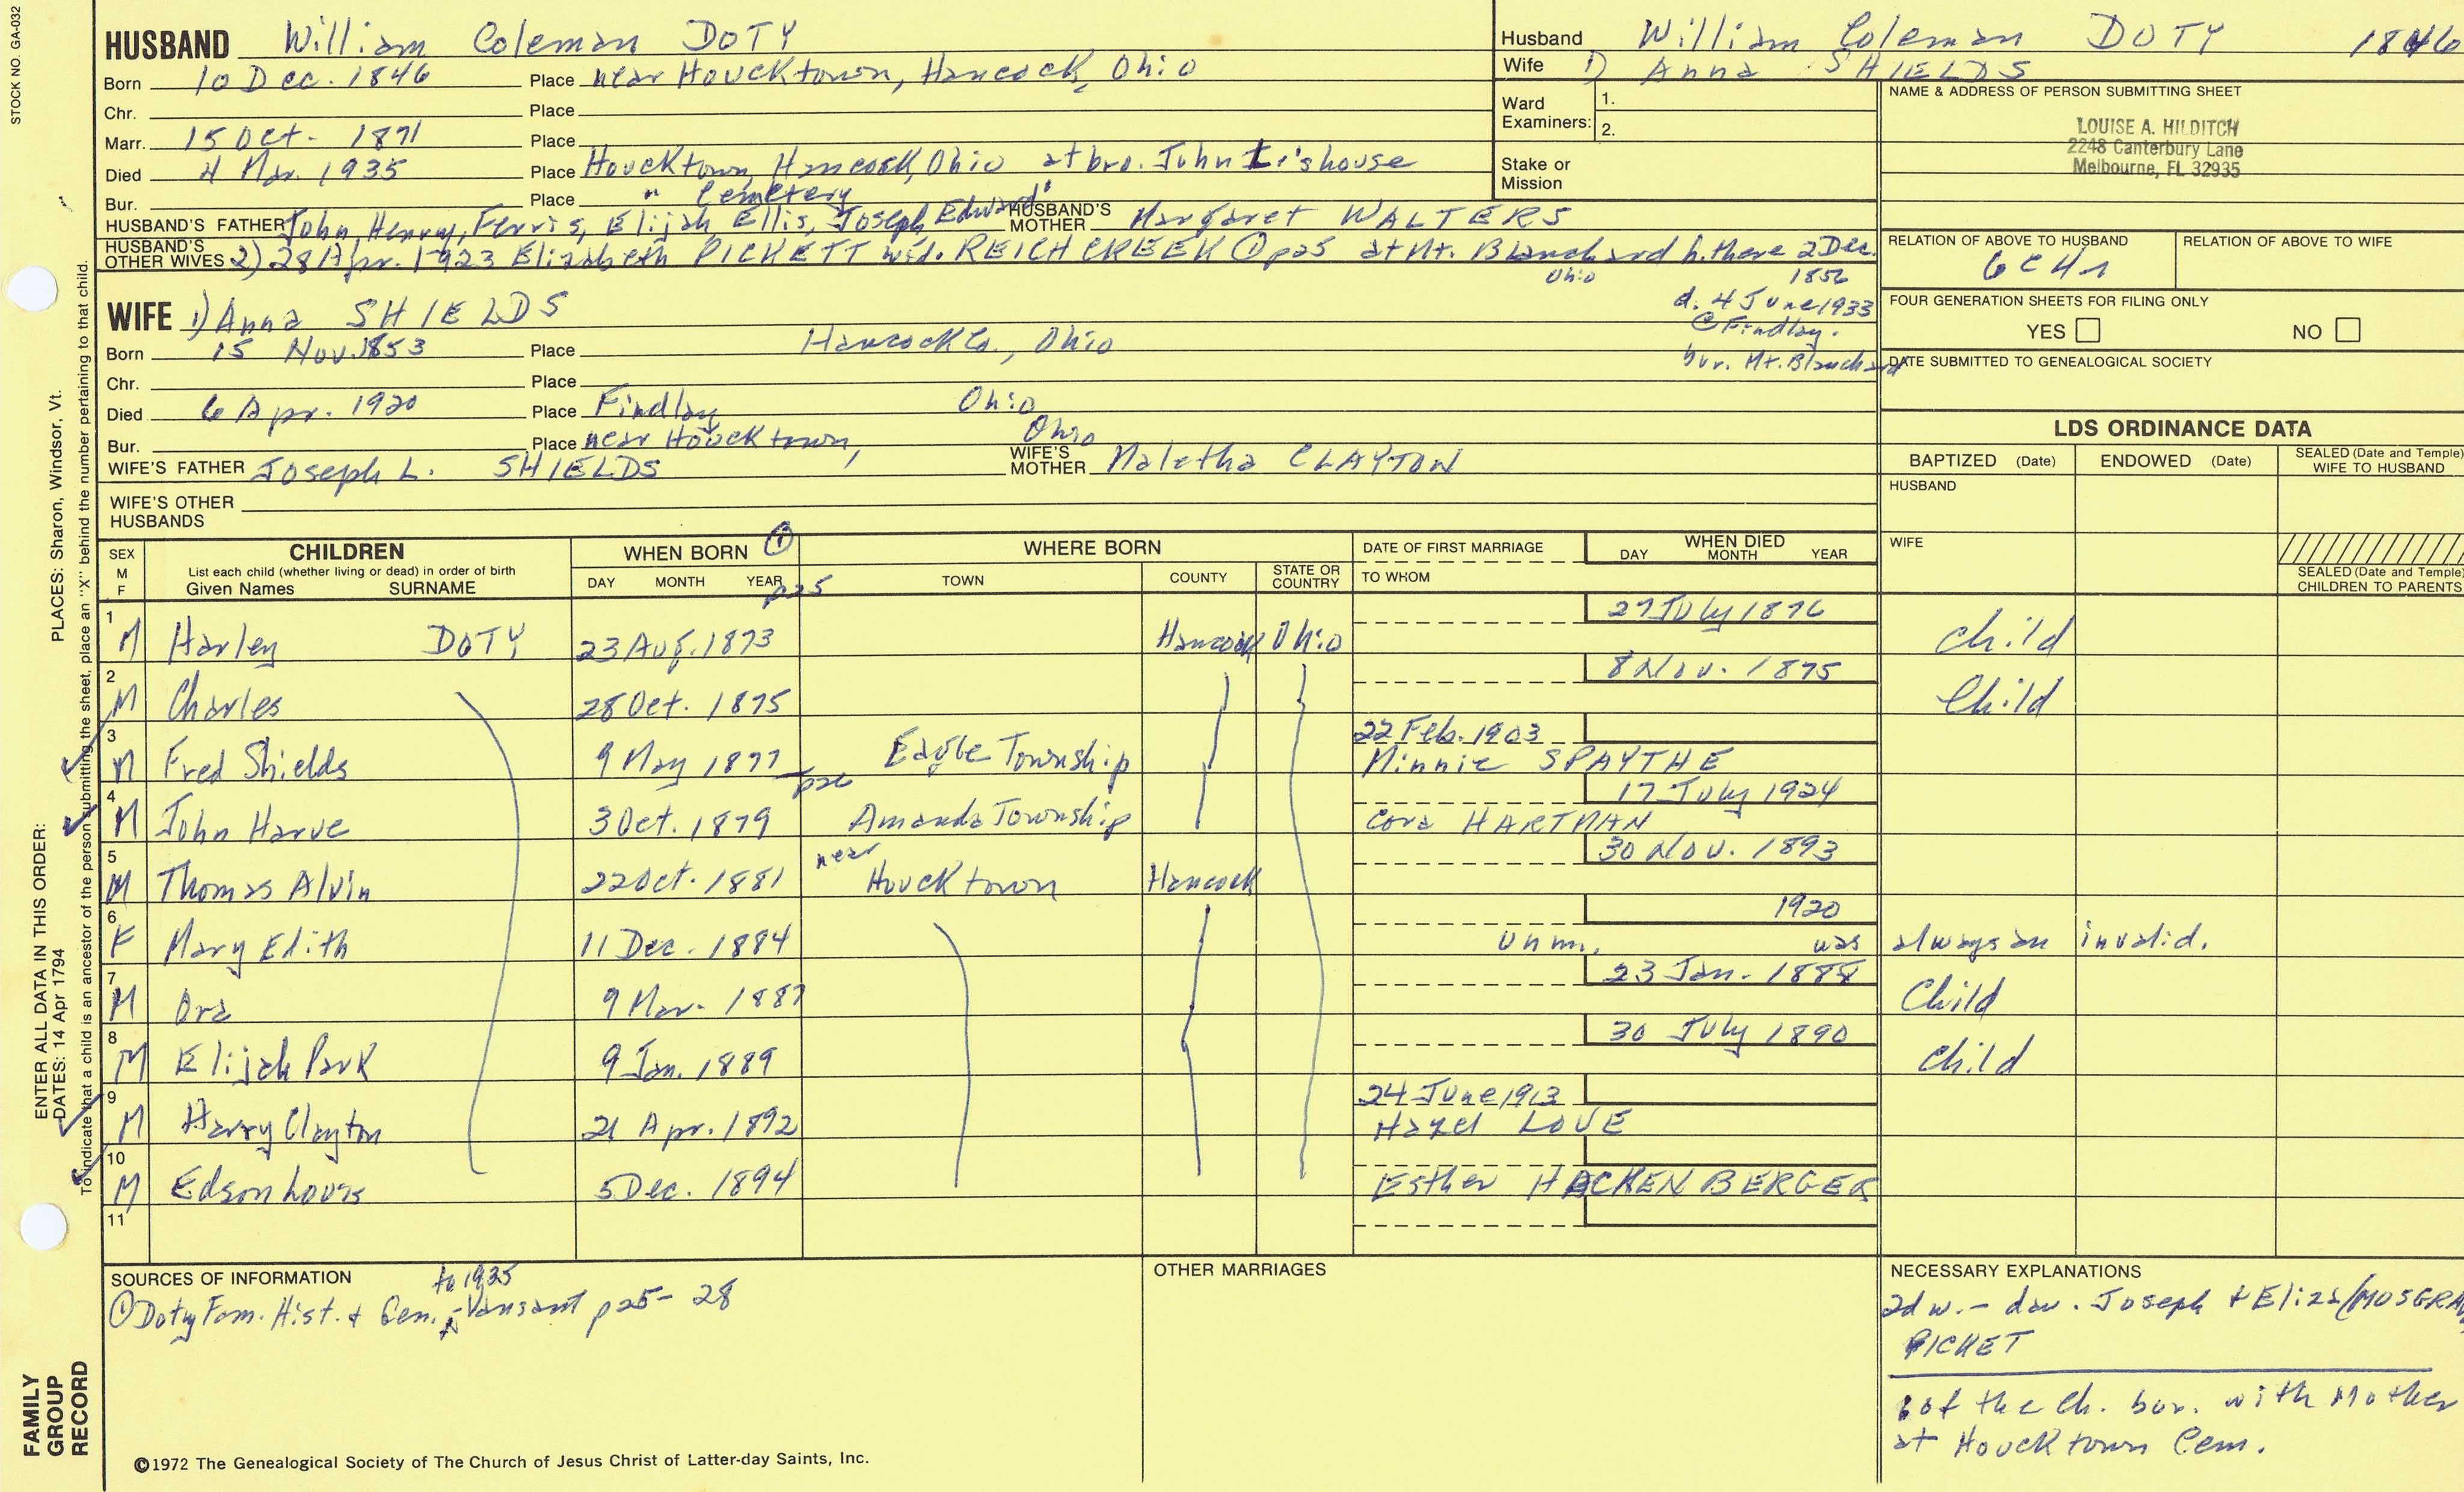 STOCK NO. GA-032
HUSBAND William Coleman DOTY
Born 10 Dec. 1846 Place near Houcktown, Hancock, Ohio
Chr. Place
Marr. 15 Oct. 1871 Place
Died 4 Mar. 1935 Place Houcktown, Hancock, Ohio at bro. John L.'s house
Bur. Place " Cemetery
HUSBAND'S FATHER John Henry, Ferris, Elijah, Ellis, Joseph, Edward HUSBAND'S MOTHER Margaret WALTERS
HUSBAND'S OTHER WIVES 2) 28 Apr. 1923 Elizabeth PICKETT wid. REICHCREEK ① p25 at Mt. Blanchard b. there 2 Dec.
Ohio 1856
d. 4 June 1933
@ Findlay.
bur. Mt. Blanchard
WIFE 1) Anna SHIELDS
Born 15 Nov. 1853 Place Hancock Co., Ohio
Chr. Place
Died 6 Apr. 1920 Place Findlay Ohio
Bur. Place near Houcktown, Ohio
WIFE'S FATHER Joseph L. SHIELDS WIFE'S MOTHER Maletha CLAYTON
WIFE'S OTHER HUSBANDS
Husband William Coleman DOTY 1846
Wife 1) Anna SHIELDS
Ward Examiners: 1.
2.
Stake or Mission
NAME & ADDRESS OF PERSON SUBMITTING SHEET
LOUISE A. HILDITCH
2248 Canterbury Lane
Melbourne, FL 32935
RELATION OF ABOVE TO HUSBAND RELATION OF ABOVE TO WIFE
6C4r
FOUR GENERATION SHEETS FOR FILING ONLY
YES NO
DATE SUBMITTED TO GENEALOGICAL SOCIETY
LDS ORDINANCE DATA
BAPTIZED (Date) ENDOWED (Date) SEALED (Date and Temple) WIFE TO HUSBAND
HUSBAND
WIFE
SEALED (Date and Temple) CHILDREN TO PARENTS
SEX M F CHILDREN WHEN BORN ① WHERE BORN DATE OF FIRST MARRIAGE WHEN DIED
List each child (whether living or dead) in order of birth
Given Names SURNAME DAY MONTH YEAR p25 TOWN COUNTY STATE OR COUNTRY TO WHOM DAY MONTH YEAR
1 M Harley DOTY 23 Aug. 1873 Hancock Ohio 27 July 1876 Child
2 M Charles 28 Oct. 1875 8 Nov. 1875 Child
3 M Fred Shields 9 May 1877 p26 Eagle Township 22 Feb. 1903 Minnie SPAYTHE
4 M John Harve 3 Oct. 1879 Amanda Township 17 July 1924 Cora HARTMAN
5 M Thomas Alvin 22 Oct. 1881 near Houcktown Hancock 30 Nov. 1893
6 F Mary Edith 11 Dec. 1884 1920 Unm. was always an invalid.
7 M Ora 9 Mar. 1887 23 Jan. 1888 Child
8 M Elijah Park 9 Jan. 1889 30 July 1890 Child
9 M Harry Clayton 21 Apr. 1892 24 June 1913 Hazel LOVE
10 M Edson Louis 5 Dec. 1894 Esther HACKENBERGER
11
SOURCES OF INFORMATION
to 1935
① Doty Fam. Hist. & Gen. - Vansant p25-28
OTHER MARRIAGES
NECESSARY EXPLANATIONS
2d w. - dau. Joseph & Eliza (MOSGRA
PICKET
6 of the ch. bur. with Mother
at Houcktown Cem.
©1972 The Genealogical Society of The Church of Jesus Christ of Latter-day Saints, Inc.
FAMILY
GROUP
RECORD
ENTER ALL DATA IN THIS ORDER:
PLACES: Sharon, Windsor, Vt.
DATES: 14 Apr 1794
To indicate that a child is an ancestor of the person submitting the sheet, place an "X" behind the number pertaining to that child.